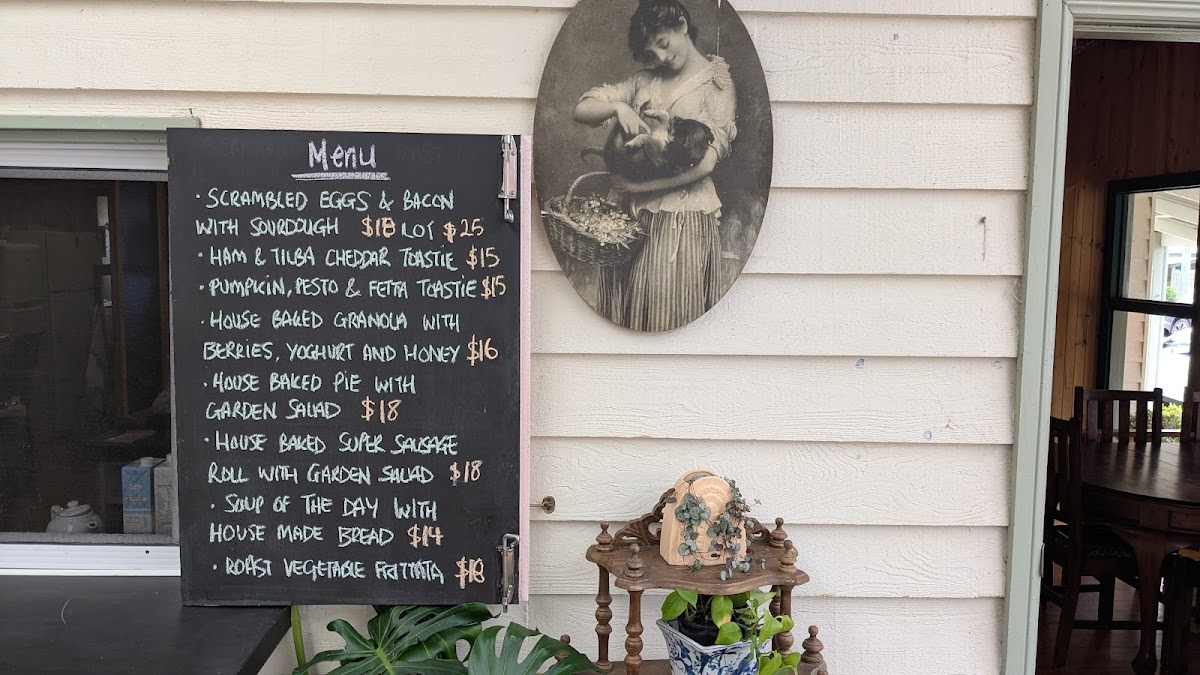 Menu
· SCRAMBLED EGGS & BACON
WITH SOURDOUGH $18 LOT $25
· HAM & TILBA CHEDDAR TOASTIE $15
· PUMPKIN, PESTO & FETTA TOASTIE $15
· HOUSE BAKED GRANOLA WITH
BERRIES, YOGHURT AND HONEY $16
· HOUSE BAKED PIE WITH
GARDEN SALAD $18
· HOUSE BAKED SUPER SAUSAGE
ROLL WITH GARDEN SALAD $18
· SOUP OF THE DAY WITH
HOUSE MADE BREAD $14
· ROAST VEGETABLE FRITTATA $18